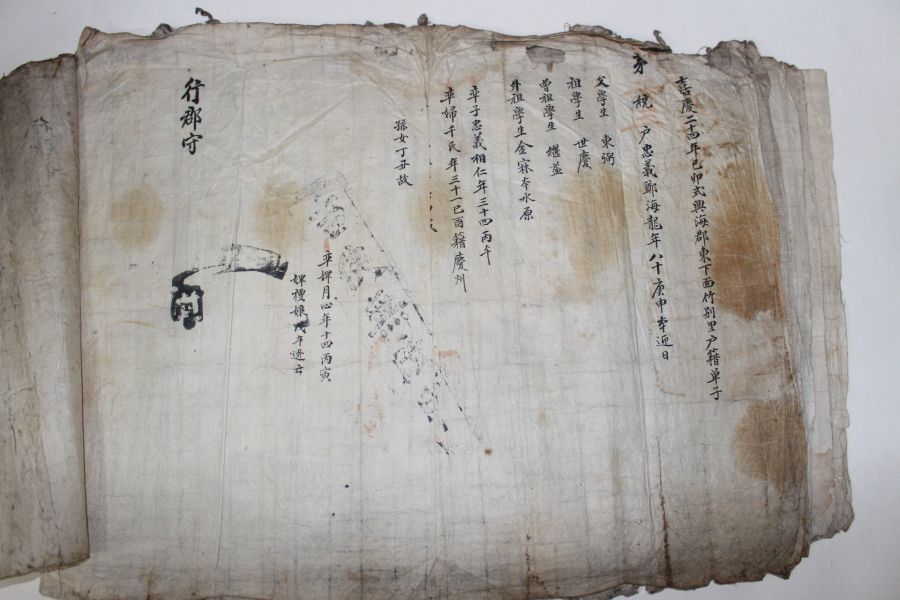 嘉慶二十四年己卯式興海郡東下面竹别里户籍單子
苐 統 户忠義鄭海龍年八十庚申本迎日
父學生 東弼
祖學生 世慶
曾祖學生 繼益
外祖學生金 本水原
率子忠義相仁年三十四丙午
率婦千氏年三十一己酉籍慶州
孫女丁丑故
率婢月心年十四丙寅
婢禮娘戊午逃亡
行郡守